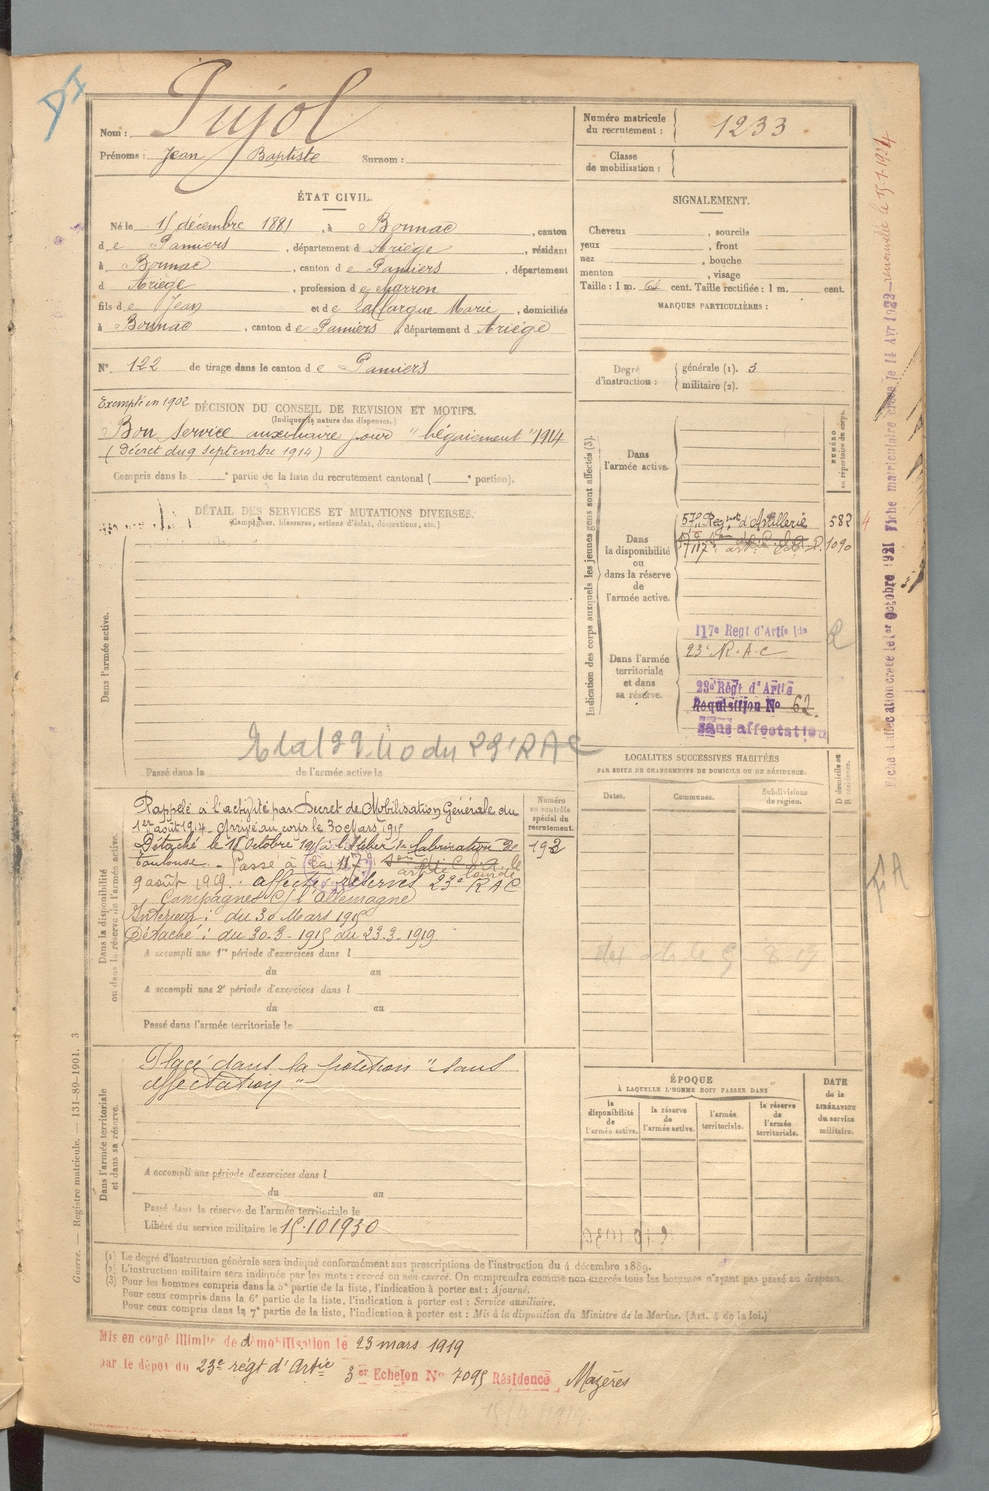 Nom : Pujol
Prénoms : Jean Baptiste Surnom :
Numéro matricule
du recrutement : 1233
Classe
de mobilisation :
ÉTAT CIVIL.
Né le 15 décembre 1881, à Bonnac, canton
de Pamiers, département d Ariège, résidant
à Bonnac, canton de Pamiers, département
d Ariège, profession de charron
fils de Jean et de Laffargue Marie, domiciliés
à Bonnac, canton de Pamiers, département d Ariège
N° 122 de tirage dans le canton de Pamiers
SIGNALEMENT.
Cheveux , sourcils
yeux , front
nez , bouche
menton , visage
Taille : 1 m. 64 cent. Taille rectifiée : 1 m. cent.
MARQUES PARTICULIÈRES :
Degré
d'instruction :
générale (1). 3
militaire (2).
Exempté en 1902 DÉCISION DU CONSEIL DE REVISION ET MOTIFS.
(Indiquer la nature des dispenses.)
Bon service auxiliaire pour "bégaiement" 1914
(Décret du 9 septembre 1914)
Compris dans la e partie de la liste du recrutement cantonal ( e portion).
DÉTAIL DES SERVICES ET MUTATIONS DIVERSES.
(Campagnes, blessures, actions d'éclat, décorations, etc.)
Dans l'armée active.
Etat 39-40 du 23e RAC
Passé dans la de l'armée active le
Indication des corps auxquels les jeunes gens sont affectés (3).
NUMÉRO
au répertoire du corps.
Dans
l'armée active.
Dans
la disponibilité
ou
dans la réserve
de
l'armée active.
57e Regiment d'Artillerie 582
117e 1090
Dans l'armée
territoriale
et dans
sa réserve.
117e Regt d'Artie lde
23e R.A.C
23e Régt d'Artie
Requisition N° 62
sans affectation
Dans la disponibilité
ou dans la réserve de l'armée active.
Numéro
au contrôle
spécial du
recrutement.
192
Rappelé à l'activité par Décret de Mobilisation Générale du
1er août 1914. Arrivé au corps le 30 Mars 1915
Détaché le 18 Octobre 1915 à l'Atelier de fabrication de
Toulouse. Passé à 117e artie lourde le
9 août 1919. affecté réserves 23e RAC
Campagnes C/ l'Allemagne
Intérieur : du 30 Mars 1915
Détaché : du 30-3-1915 au 23-3-1919.
A accompli une 1re période d'exercices dans l
du au
A accompli une 2e période d'exercices dans l
du au
Passé dans l'armée territoriale le
LOCALITÉS SUCCESSIVES HABITÉES
PAR SUITE DE CHANGEMENTS DE DOMICILE OU DE RÉSIDENCE.
Dates. Communes. Subdivisions
de région.
D domicile ou
R résidence.
Dans l'armée territoriale
et dans sa réserve.
Placé dans la position "sans
affectation"
A accompli une période d'exercices dans l
du au
Passé dans la réserve de l'armée territoriale le
Libéré du service militaire le 15.10 1930
ÉPOQUE
À LAQUELLE L'HOMME DOIT PASSER DANS
la
disponibilité
de
l'armée active.
la réserve
de
l'armée active.
l'armée
territoriale.
la réserve
de
l'armée
territoriale.
DATE
de la
LIBÉRATION
du service
militaire.
(1) Le degré d'instruction générale sera indiqué conformément aux prescriptions de l'instruction du 4 décembre 1889.
(2) L'instruction militaire sera indiquée par les mots : exercé ou non exercé. On comprendra comme non exercés tous les hommes n'ayant pas passé au drapeau.
(3) Pour les hommes compris dans la 5e partie de la liste, l'indication à porter est : Ajourné.
Pour ceux compris dans la 6e partie de la liste, l'indication à porter est : Service auxiliaire.
Pour ceux compris dans la 7e partie de la liste, l'indication à porter est : Mis à la disposition du Ministre de la Marine. (Art. 4 de la loi.)
Mis en congé illimité de démobilisation le 23 mars 1919
par le dépôt du 23e régt d'Artie 3er Echelon N° 7095 Résidence Mazères
Guerre. — Registre matricule. 131-89-1901. 3
Fiche d'affectation créée le 1er Octobre 1921 Fiche matriculaire créée le 14 Avr 1922